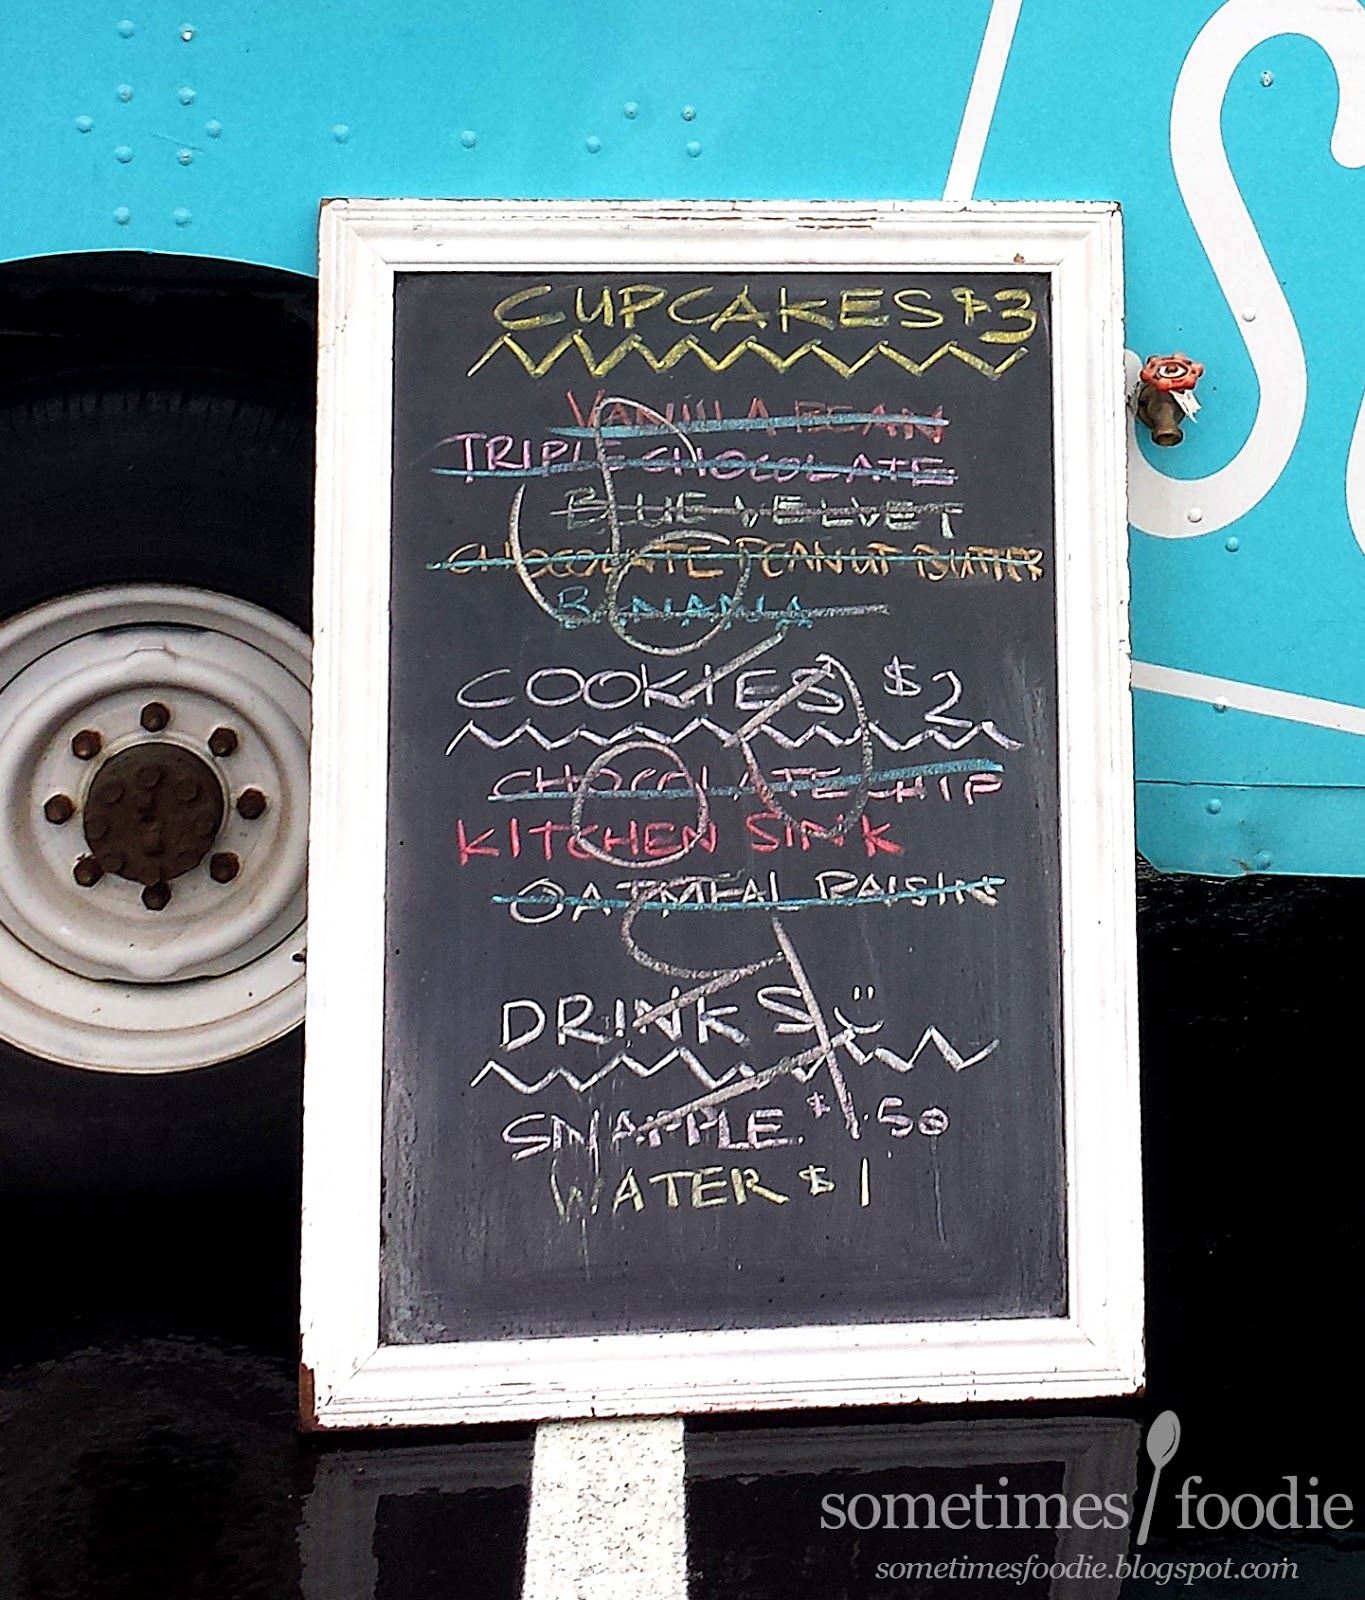 CUPCAKES $3
VANILLA BEAN
TRIPLE CHOCOLATE
BLUE VELVET
CHOCOLATE PEANUT BUTTER
BANANA
COOKIES $2
CHOCOLATE CHIP
KITCHEN SINK
OATMEAL RAISIN
DRINKS
SNAPPLE $1.50
WATER $1
sometimes foodie
sometimesfoodie.blogspot.com